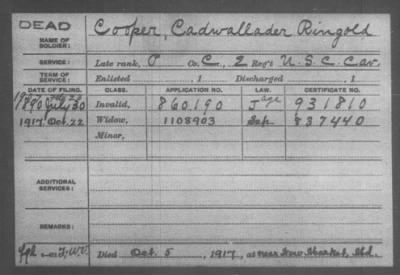 DEAD
NAME OF SOLDIER: Cooper, Cadwallader Ringold
SERVICE: Late rank, P Co. C, 2 Reg't U.S.C. Cav.
TERM OF SERVICE: Enlisted , 1 Discharged , 1
DATE OF FILING. CLASS. APPLICATION NO. LAW. CERTIFICATE NO.
1890 July 30 Invalid, 860,190 J age 931810
1917 Oct. 22 Widow, 1108903 837440
Minor,
ADDITIONAL SERVICES:
REMARKS:
Died Oct. 5, 1917, at near New Market, Md.